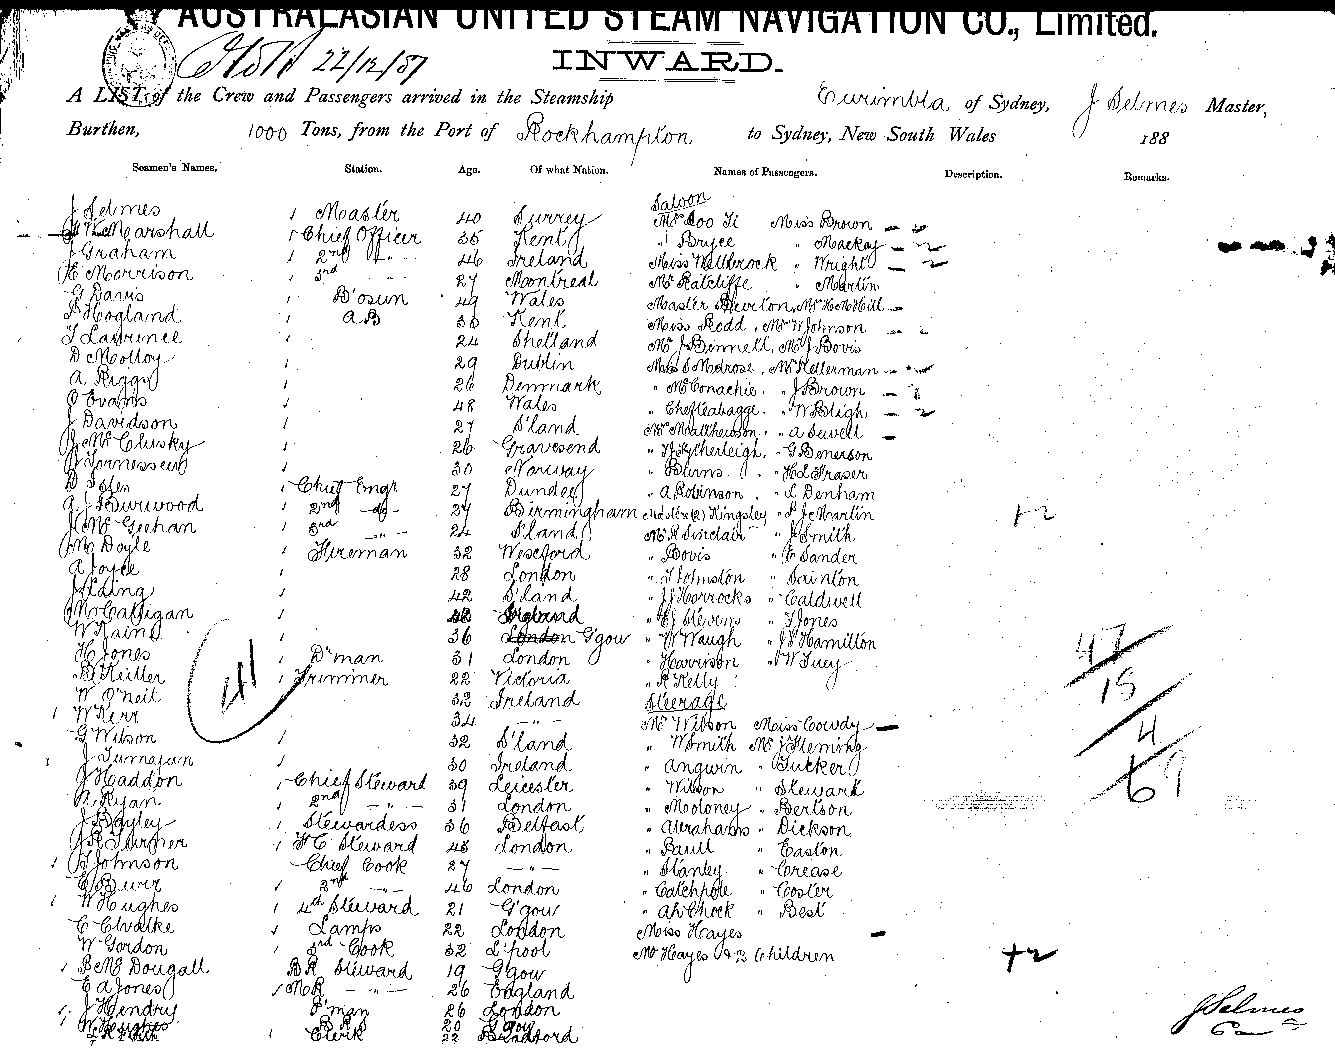 AUSTRALASIAN UNITED STEAM NAVIGATION CO., Limited.
22/12/87
INWARD.
A LIST of the Crew and Passengers arrived in the Steamship Eurimbla of Sydney, J Selmes Master,
Burthen, 1000 Tons, from the Port of Rockhampton to Sydney, New South Wales 188
Seamen's Names. Station. Age. Of what Nation. Names of Passengers. Description. Remarks.
Saloon
J Selmes 1 Master 40 Surrey Mr Loo Ti Miss Brown
Marshall 1 Chief Officer 35 Kent " Bryce " Mackay
J Graham 1 2nd " 46 Ireland Miss " Wright
Morrison 1 3rd 27 Montreal Mr Ratcliffe " Martin
G Davis 1 B'osun 49 Wales Master
Hogland 1 AB 30 Kent Miss Rodd, Mr W Johnson
T Lawrence 1 24 Shetland Mr J Binnell, Mr J Bovis
D Molloy 1 29 Dublin Miss S Modrose, Mr Kellerman
A Riggy 1 26 Denmark " McConachie " J Brown
O Evans 1 48 Wales " " W Bligh
J Davidson 1 27 S'land Mr Matthewson " A Suvell
J McClusky 1 26 Gravesend " " G Benerson
30 Norway " Burns " H L Fraser
D 1 Chief Engr 27 Dundee " A Robinson " L Denham
A J Burwood 1 2nd do 27 Birmingham Kingsley " Martin
J McGeehan 1 3rd " 24 S'land Mr R Sinclair " J Smith
Doyle 1 Fireman 32 Wexford " Bovis " F Sander
A Joyce 1 28 London " T Johnston " Sainton
J Laing 1 42 S'land " J Horrocks " Caldwell
McCalligan 1 " Stevens " T Jones
W Raine 1 36 London G'gow " W Waugh " Hamilton
H Jones 1 D'man 31 London " Harrison " W Tuey
Keiller 1 Trimmer 22 Victoria " R Kelly
W O'Neil 32 Ireland Steerage
1 W Kerr 34 — " — Mr Wilson Miss Cowdy
G Wilson 32 S'land " W Smith Mr J Fleming
J 1 30 Ireland " Angwin " Tucker
J Haddon 1 Chief Steward 39 Leicester " Wilson " Stewark
Ryan 1 2nd — " — 31 London " Mooloney " Bertson
J Bayley 1 Stewardess 36 Belfast " Abrahams " Dickson
J R Turner 1 F C Steward 48 London " Baull " Easton
1 Johnson Chief Cook 27 — " — " Stanley " Crease
Burr 1 2nd — " — 46 London " Catchpole " Coster
1 W Hughes 1 4th Steward 21 G'gow " Ah Chock " Best
C 1 Lamps 22 London Miss Hayes
W Gordon 1 3rd Cook 32 L'pool Mr Hayes & 2 Children
1 McDougall BR Steward 19 G'gow
E A Jones 1 MR — " — 26 England
1 J Hendry F'man 26 London
1 W Hughes 20 G'gow
1 Clerk 22 Bradford
41
+2
+2
47
15
4
69
J Selmes